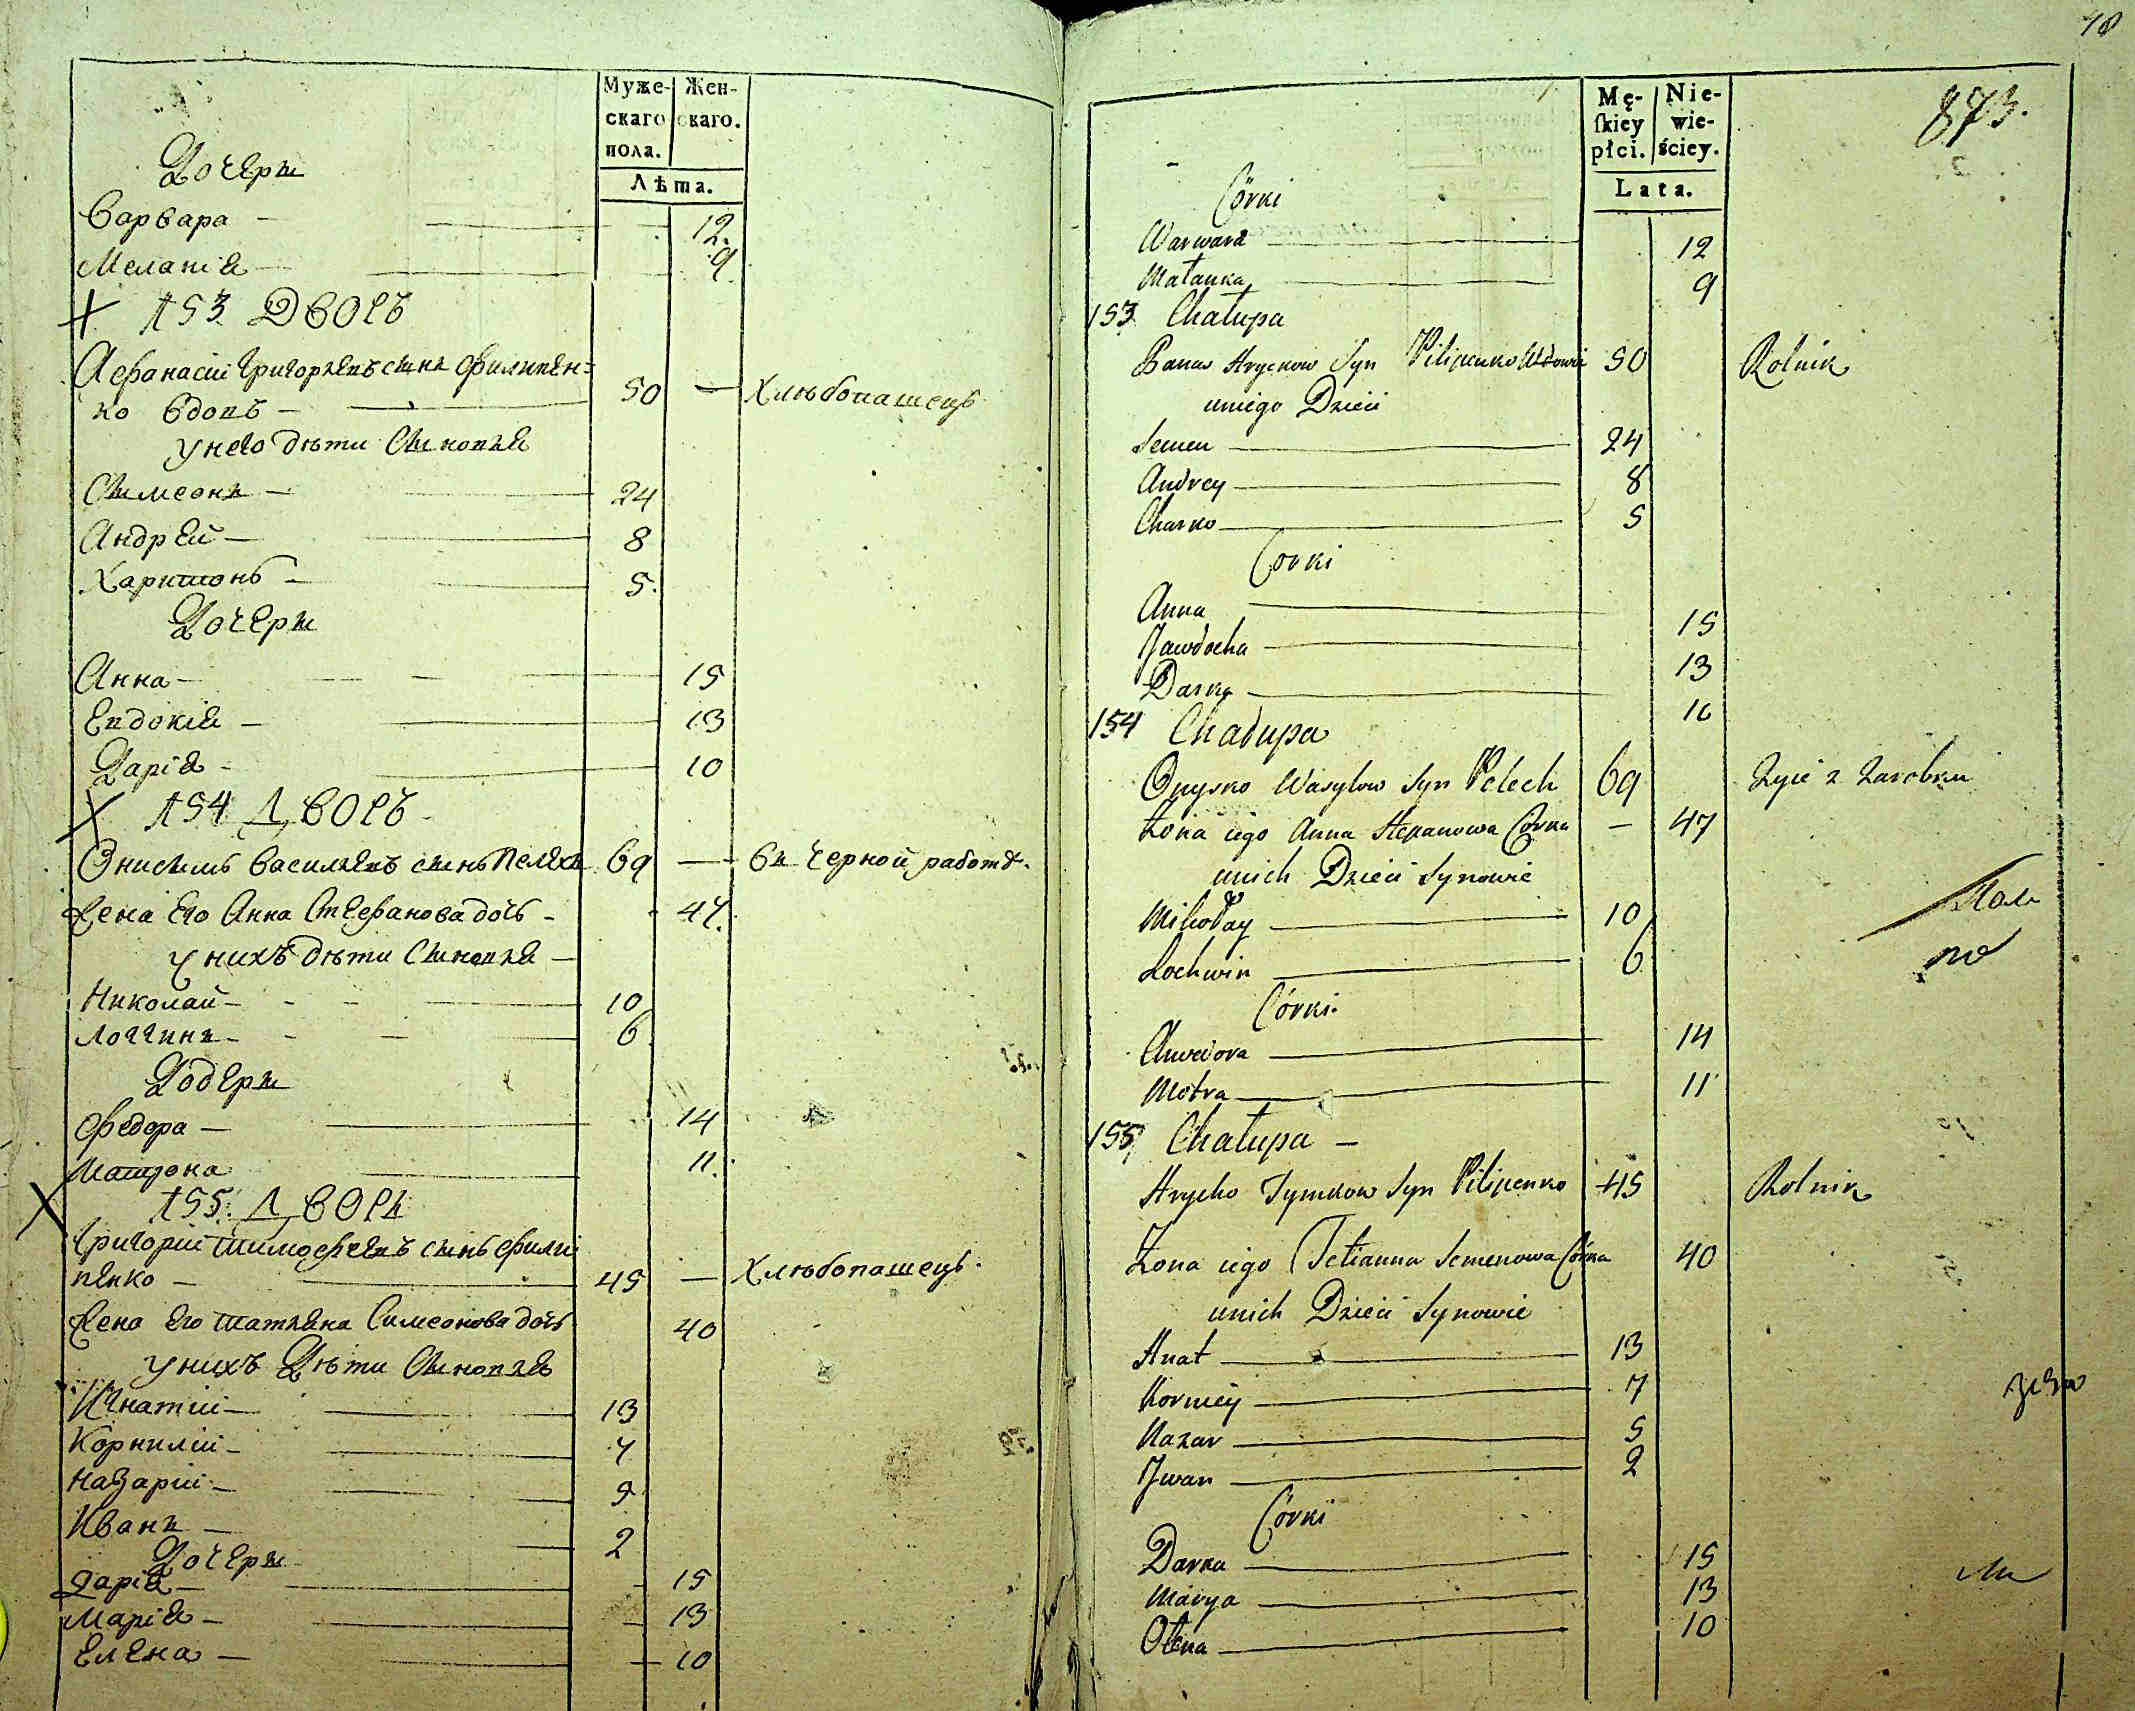 Муже-
скаго
пола.
Жен-
скаго.
Лѣта.
Дочери
Варвара — 12.
Меланія — 9
153 Дворъ
Аѳанасій Григорьевъ сынъ Филипен=
ко вдовъ — 50 — Хлѣбопашецъ
у него дѣти Сыновья
Сымеонъ — 24
Андрей — 8
Харитонъ — 5.
Дочери
Анна — 15
Евдокія — 13
Дарія — 10
154 Дворъ
Онисимъ Васильевъ сынъ Пелехъ 69 — въ черной работѣ.
Жена Его Анна Стефанова дочь — 47.
у нихъ дѣти Сыновья —
Николай — 10
Логгинъ — 6.
Дочери
Федора — 14
Матрона 11.
155. Дворъ
Григорій Тимофѣевъ сынъ Фили
пенко — 45 — Хлѣбопашецъ.
Жена Его Татьяна Симеонова дочь 40
у нихъ Дѣти Сыновья
Игнатій — 13
Корнилій — 7
Назарій — 5
Иванъ — 2
Дочери
Дарія — 15
Марія — 13
Елена — 10
10
Mę-
skiey
płci.
Nie-
wie-
ściey.
Lata.
873.
Córki
Warwara — 12
Małanka — 9
153 Chałupa
Panas Hryckow Syn Pilipenko Wdowie 50 Rolnik
uniego Dzieci
Semen — 24
Andrey — 8
Charko — 5
Corki
Anna — 15
Jawdocha — 13
Darka — 10
154 Chałupa
Onysko Wasylow Syn Pelech 69 Zyie z Zarobku
Żona iego Anna Stepanowa Córka — 47
unich Dzieci Synowie
Mikołay — 10
Lochwin — 6
Córki.
Chwedora — 14
Motra — 11
155 Chałupa —
Hrycko Tymkow Syn Pilipenko 45 Rolnik
Żona iego Tetianna Semenowa Córka 40
unich Dzieci Synowie
Hnat — 13
Korniey — 7
Nazar — 5
Jwan — 2
Córki
Darka — 15
Marya — 13
Ołena — 10